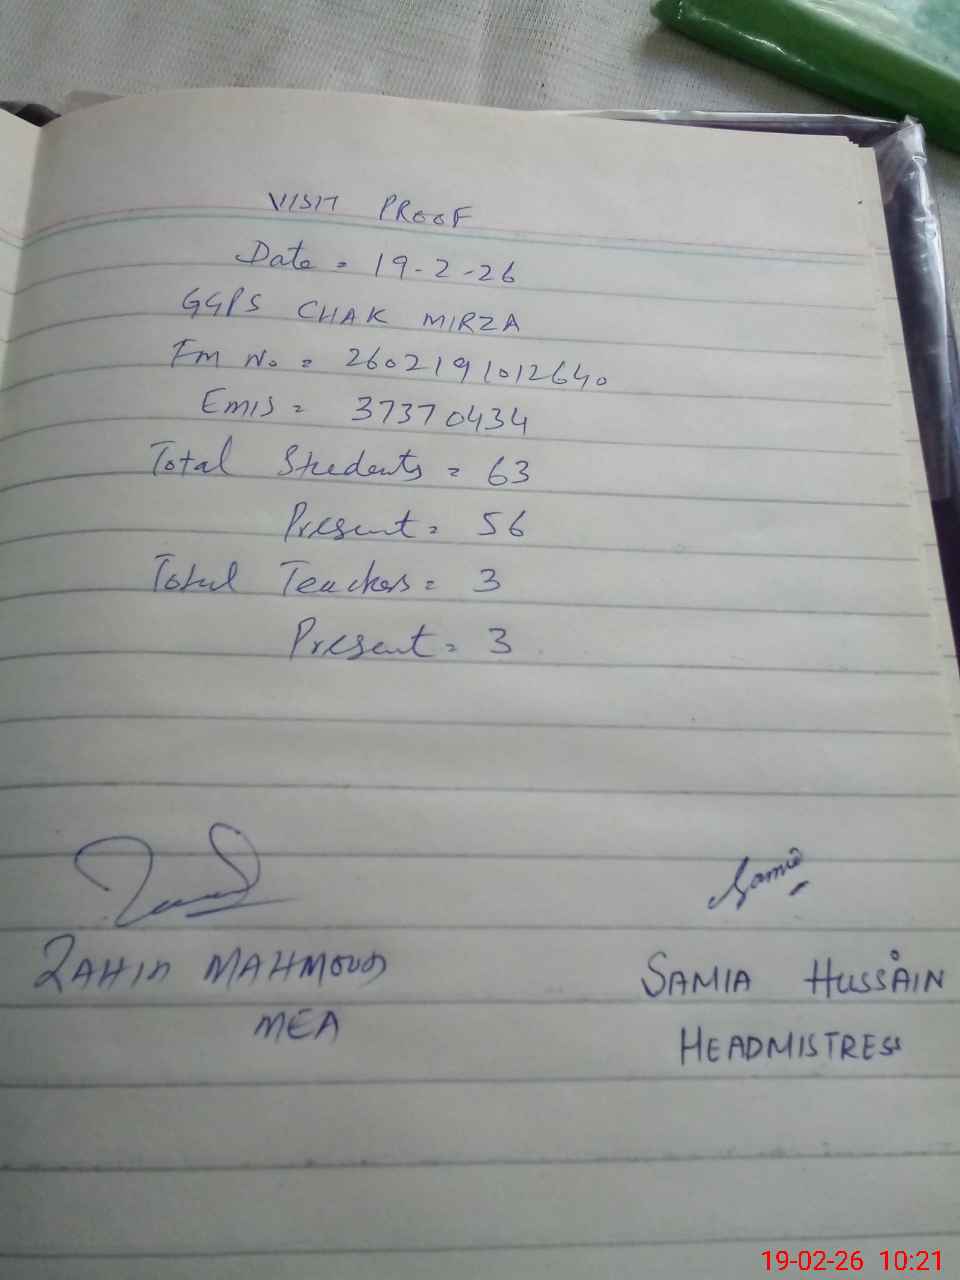 VISIT PROOF
Date = 19-2-26
GGPS CHAK MIRZA
Fm No. = 2602191012640
Emis = 37370434
Total Students = 63
Present = 56
Total Teachers = 3
Present = 3
Samia
MAHMOOD
SAMIA HUSSAIN
MEA
HEADMISTRESS
19-02-26 10:21